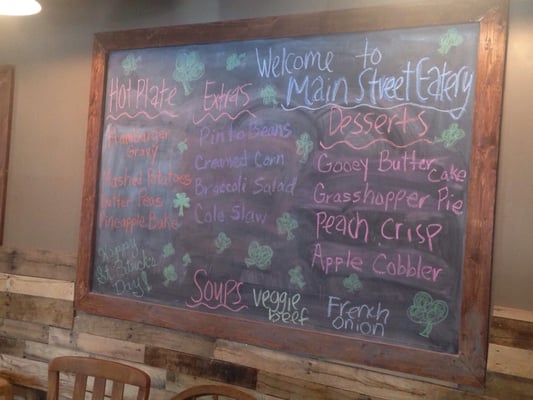 Welcome to
Main Street Eatery
Hot Plate
Hamburger
Gravy
Mashed Potatoes
Butter Peas
Pineapple Bake
Happy
St. Patrick's
Day!
Extras
Pinto Beans
Creamed Corn
Broccoli Salad
Cole Slaw
Desserts
Gooey Butter
Cake
Grasshopper Pie
Peach Crisp
Apple Cobbler
Soups
Veggie
Beef
French
Onion